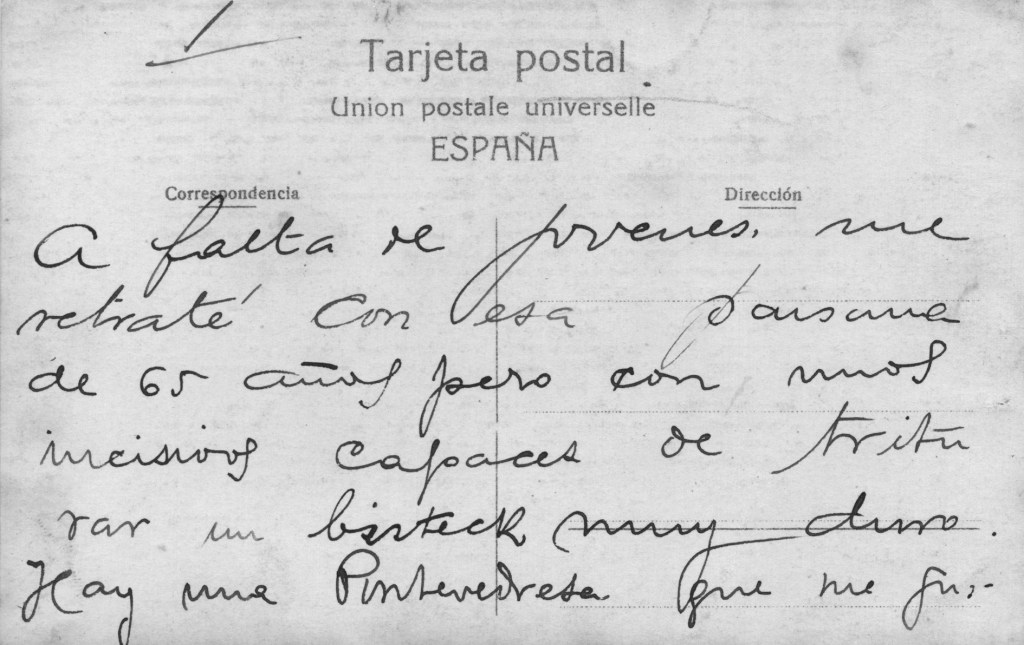 Tarjeta postal
Union postale universelle
ESPAÑA
Correspondencia Dirección
A falta de jovenes, me
retraté con esa paisana
de 65 años pero con unos
incisivos capaces de tritu
rar un bisteck muy duro.
Hay una Pontevedresa que me gus-